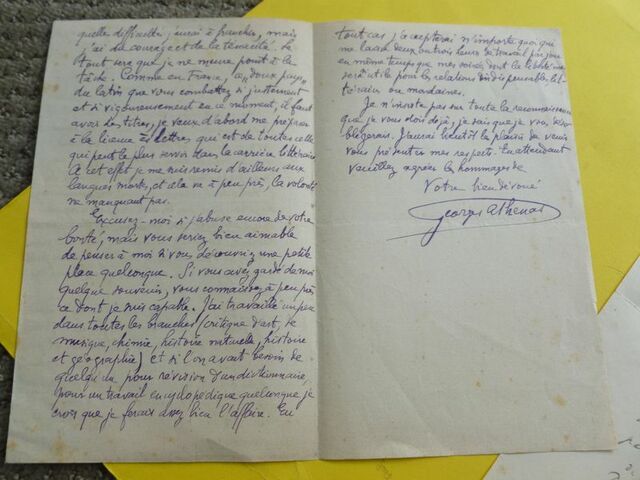 quelle difficulté j'aurai à franchir, mais
j'ai du courage et de la ténacité. Le
tout sera que je ne meure point à la
tâche. Comme en France, ce "doux pays"
du latin que vous combattez si justement
et si vigoureusement en ce moment, il faut
avoir des titres, je veux d'abord me préparer
à la licence ès lettres qui est de toutes celle
qui peut le plus servir dans la carrière littéraire
A cet effet je me suis remis d'ailleurs aux
langues mortes, et cela va à peu près, la volonté
ne manquant pas.
Excusez-moi si j'abuse encore de votre
bonté, mais vous seriez bien aimable
de penser à moi si vous découvriez une petite
place quelconque. Si vous avez gardé de moi
quelque souvenir, vous connaissez à peu près
ce dont je suis capable. J'ai travaillé un peu
dans toutes les branches (critique d'art, de
musique, chimie, histoire naturelle, histoire
et géographie) et si l'on avait besoin de
quelqu'un pour révision d'un dictionnaire,
pour un travail encyclopédique quelconque, je
crois que je ferais assez bien l'affaire. En
tout cas j'accepterai n'importe quoi qui
me laisse deux ou trois heures de travail par jour
en même temps que mes soirées dont la liberté me
sera utile pour les relations indispensables, lit-
téraires ou mondaines.
Je n'insiste pas sur toute la reconnaissance
que je vous dois déjà, je sais que je vous
obligerais. J'aurai bientôt le plaisir de venir
vous présenter mes respects. En attendant
veuillez agréer les hommages de
Votre bien dévoué
Georges Athénas